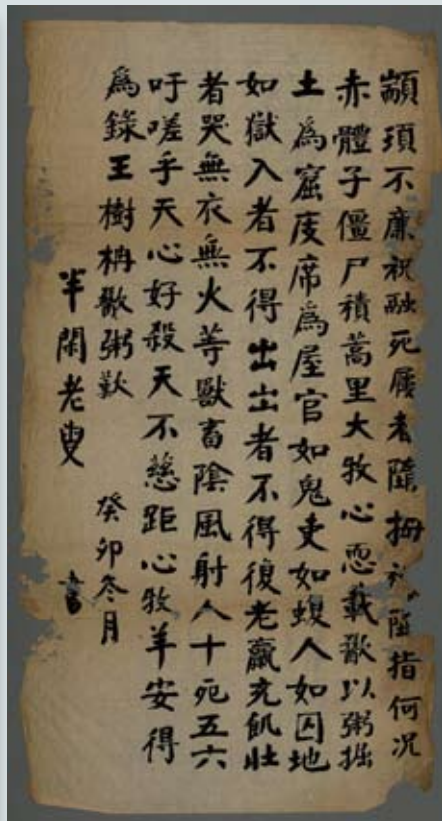 顓頊不廉祝融死屨者隨拇 隨指何况
赤體子僵尸積蒿里大牧心惡載歠以粥掘
土為窟皮席為屋官如鬼吏如蝮人如囚地
如獄入者不得出出者不得復老羸充飢壯
者哭無衣無火等獸畜陰風射人十死五六
吁嗟乎天心好殺天不慈距心牧羊安得
為錄王樹枬歠粥歎 癸卯冬月
半閑老叟 書